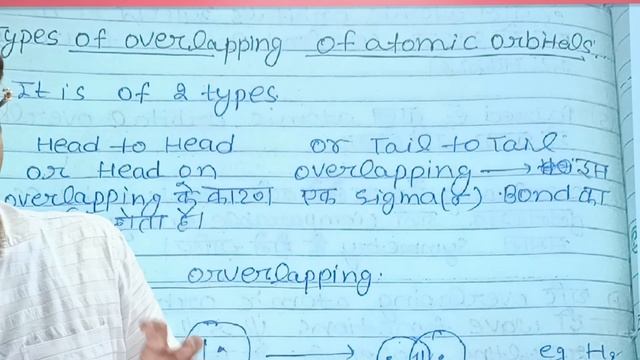 Types of overlapping of atomic orbitals.
It is of 2 types
Head to Head or Tail to Tail
or Head on overlapping → इस
overlapping के कारण एक sigma(σ) Bond का
होता है।
orverlapping:
eg H₂